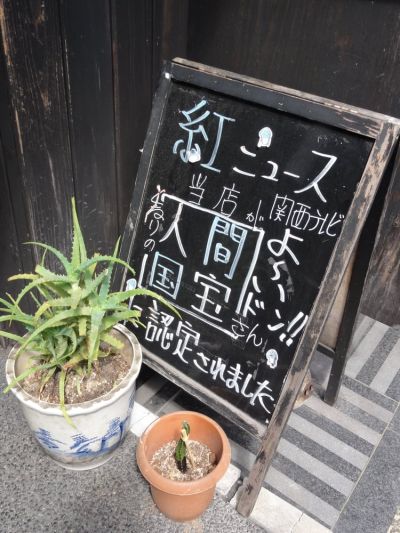 紅ニュース
当店が
関西テレビ
よ〜いドン!!
お隣りの
人間
国宝さん
に認定されました